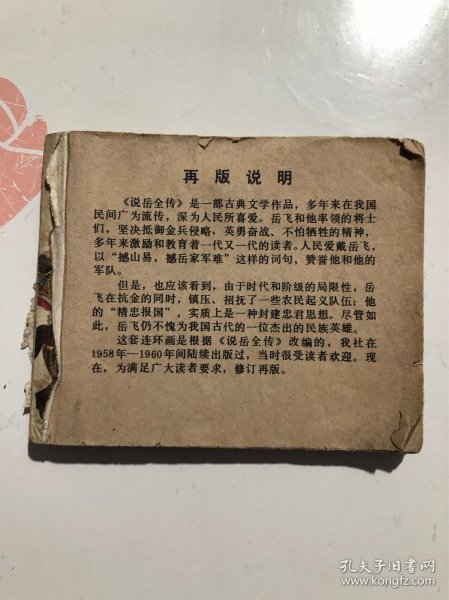 再版说明
《说岳全传》是一部古典文学作品，多年来在我国
民间广为流传，深为人民所喜爱。岳飞和他率领的将士
们，坚决抵御金兵侵略，英勇奋战、不怕牺牲的精神，
多年来激励和教育着一代又一代的读者。人民爱戴岳飞，
以“撼山易，撼岳家军难”这样的词句，赞誉他和他的
军队。
但是，也应该看到，由于时代和阶级的局限性，岳
飞在抗金的同时，镇压、招抚了一些农民起义队伍；他
的“精忠报国”，实质上是一种封建忠君思想。尽管如
此，岳飞仍不愧为我国古代的一位杰出的民族英雄。
这套连环画是根据《说岳全传》改编的，我社在
1958年—1960年间陆续出版过，当时很受读者欢迎。现
在，为满足广大读者要求，修订再版。
孔夫子旧书网
www.kongfz.com